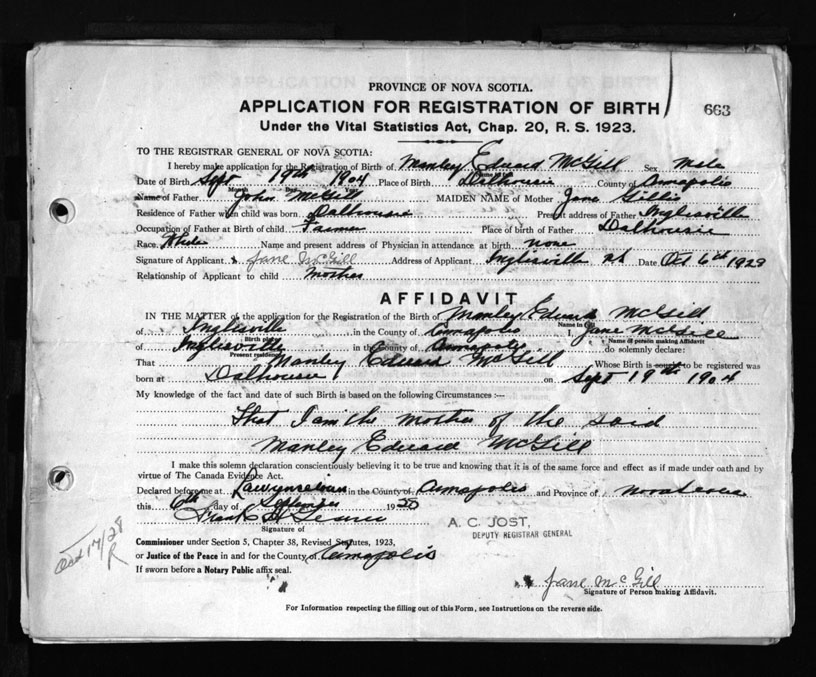 PROVINCE OF NOVA SCOTIA.
APPLICATION FOR REGISTRATION OF BIRTH
663
Under the Vital Statistics Act, Chap. 20, R. S. 1923.
TO THE REGISTRAR GENERAL OF NOVA SCOTIA:
I hereby make application for the Registration of Birth of Manley Edward McGill Sex Male
Date of Birth Sept 19th 1904 Place of Birth Dalhousie County of Annapolis
Name of Father John McGill MAIDEN NAME of Mother Jane Gillis
Residence of Father when child was born Dalhousie Present address of Father Inglisville
Occupation of Father at Birth of child Farmer Place of birth of Father Dalhousie
Race White Name and present address of Physician in attendance at birth none
Signature of Applicant Jane McGill Address of Applicant Inglisville Date Oct 6th
Relationship of Applicant to child Mother
AFFIDAVIT
IN THE MATTER of the application for the Registration of the Birth of Manley Edward McGill
Name in full
of Inglisville in the County of Annapolis I, Jane McGill
Birth place
Name of person making Affidavit
of Inglisville in the County of Annapolis do solemnly declare:
Present residence
That Manley Edward McGill Whose Birth is sought to be registered was
born at Dalhousie on Sept 19th 1904
My knowledge of the fact and date of such Birth is based on the following Circumstances :—
That I am the mother of the said
Manley Edward McGill
I make this solemn declaration conscientiously believing it to be true and knowing that it is of the same force and effect as if made under oath and by
virtue of The Canada Evidence Act.
Declared before me at in the County of Annapolis and Province of Nova Scotia
this 6th day of 19
Signature of
A. C. JOST,
DEPUTY REGISTRAR GENERAL
Commissioner under Section 5, Chapter 38, Revised Statutes, 1923,
or Justice of the Peace in and for the County of Annapolis
If sworn before a Notary Public affix seal.
Jane McGill
Signature of Person making Affidavit.
For Information respecting the filling out of this Form, see Instructions on the reverse side.